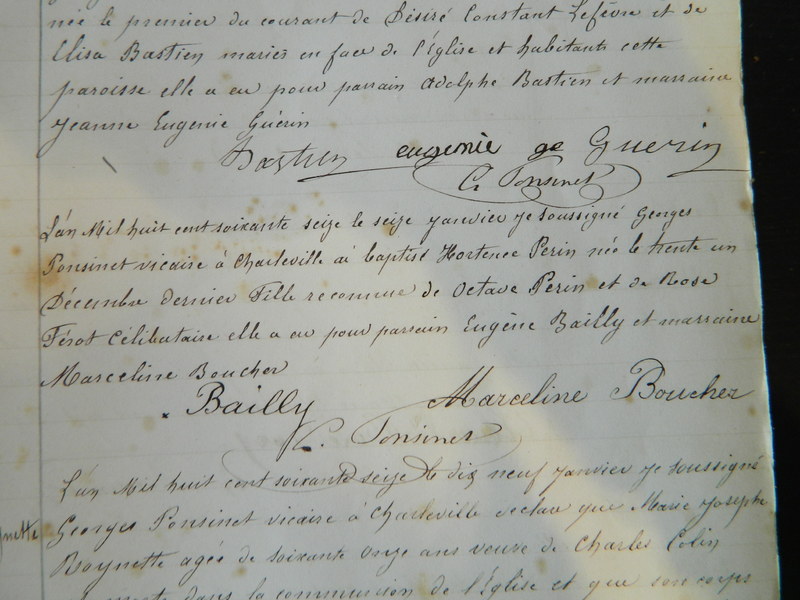 née le premier du courant de Désiré Constant Lefèvre et de
Elisa Bastien mariés en face de l'Eglise et habitants cette
paroisse elle a eu pour parrain Adolphe Bastien et marraine
Jeanne Eugenie Guérin
Bastien eugenie ge Guerin
G. Ponsinet
L'an Mil huit cent soixante seize le seize janvier je soussigné Georges
Ponsinet vicaire à Charleville ai baptisé Hortence Perin née le trente un
Décembre dernier Fille reconnue de Octave Perin et de Rose
Férot Célibataire elle a eu pour parrain Eugène Bailly et marraine
Marceline Boucher
Bailly Marceline Boucher
G. Ponsinet
L'an Mil huit cent soixante seize le dix neuf janvier je soussigné
Georges Ponsinet vicaire à Charleville déclare que Marie Josephe
Boynette agée de soixante onze ans veuve de Charles Colin
morte dans la communion de l'Eglise et que son corps